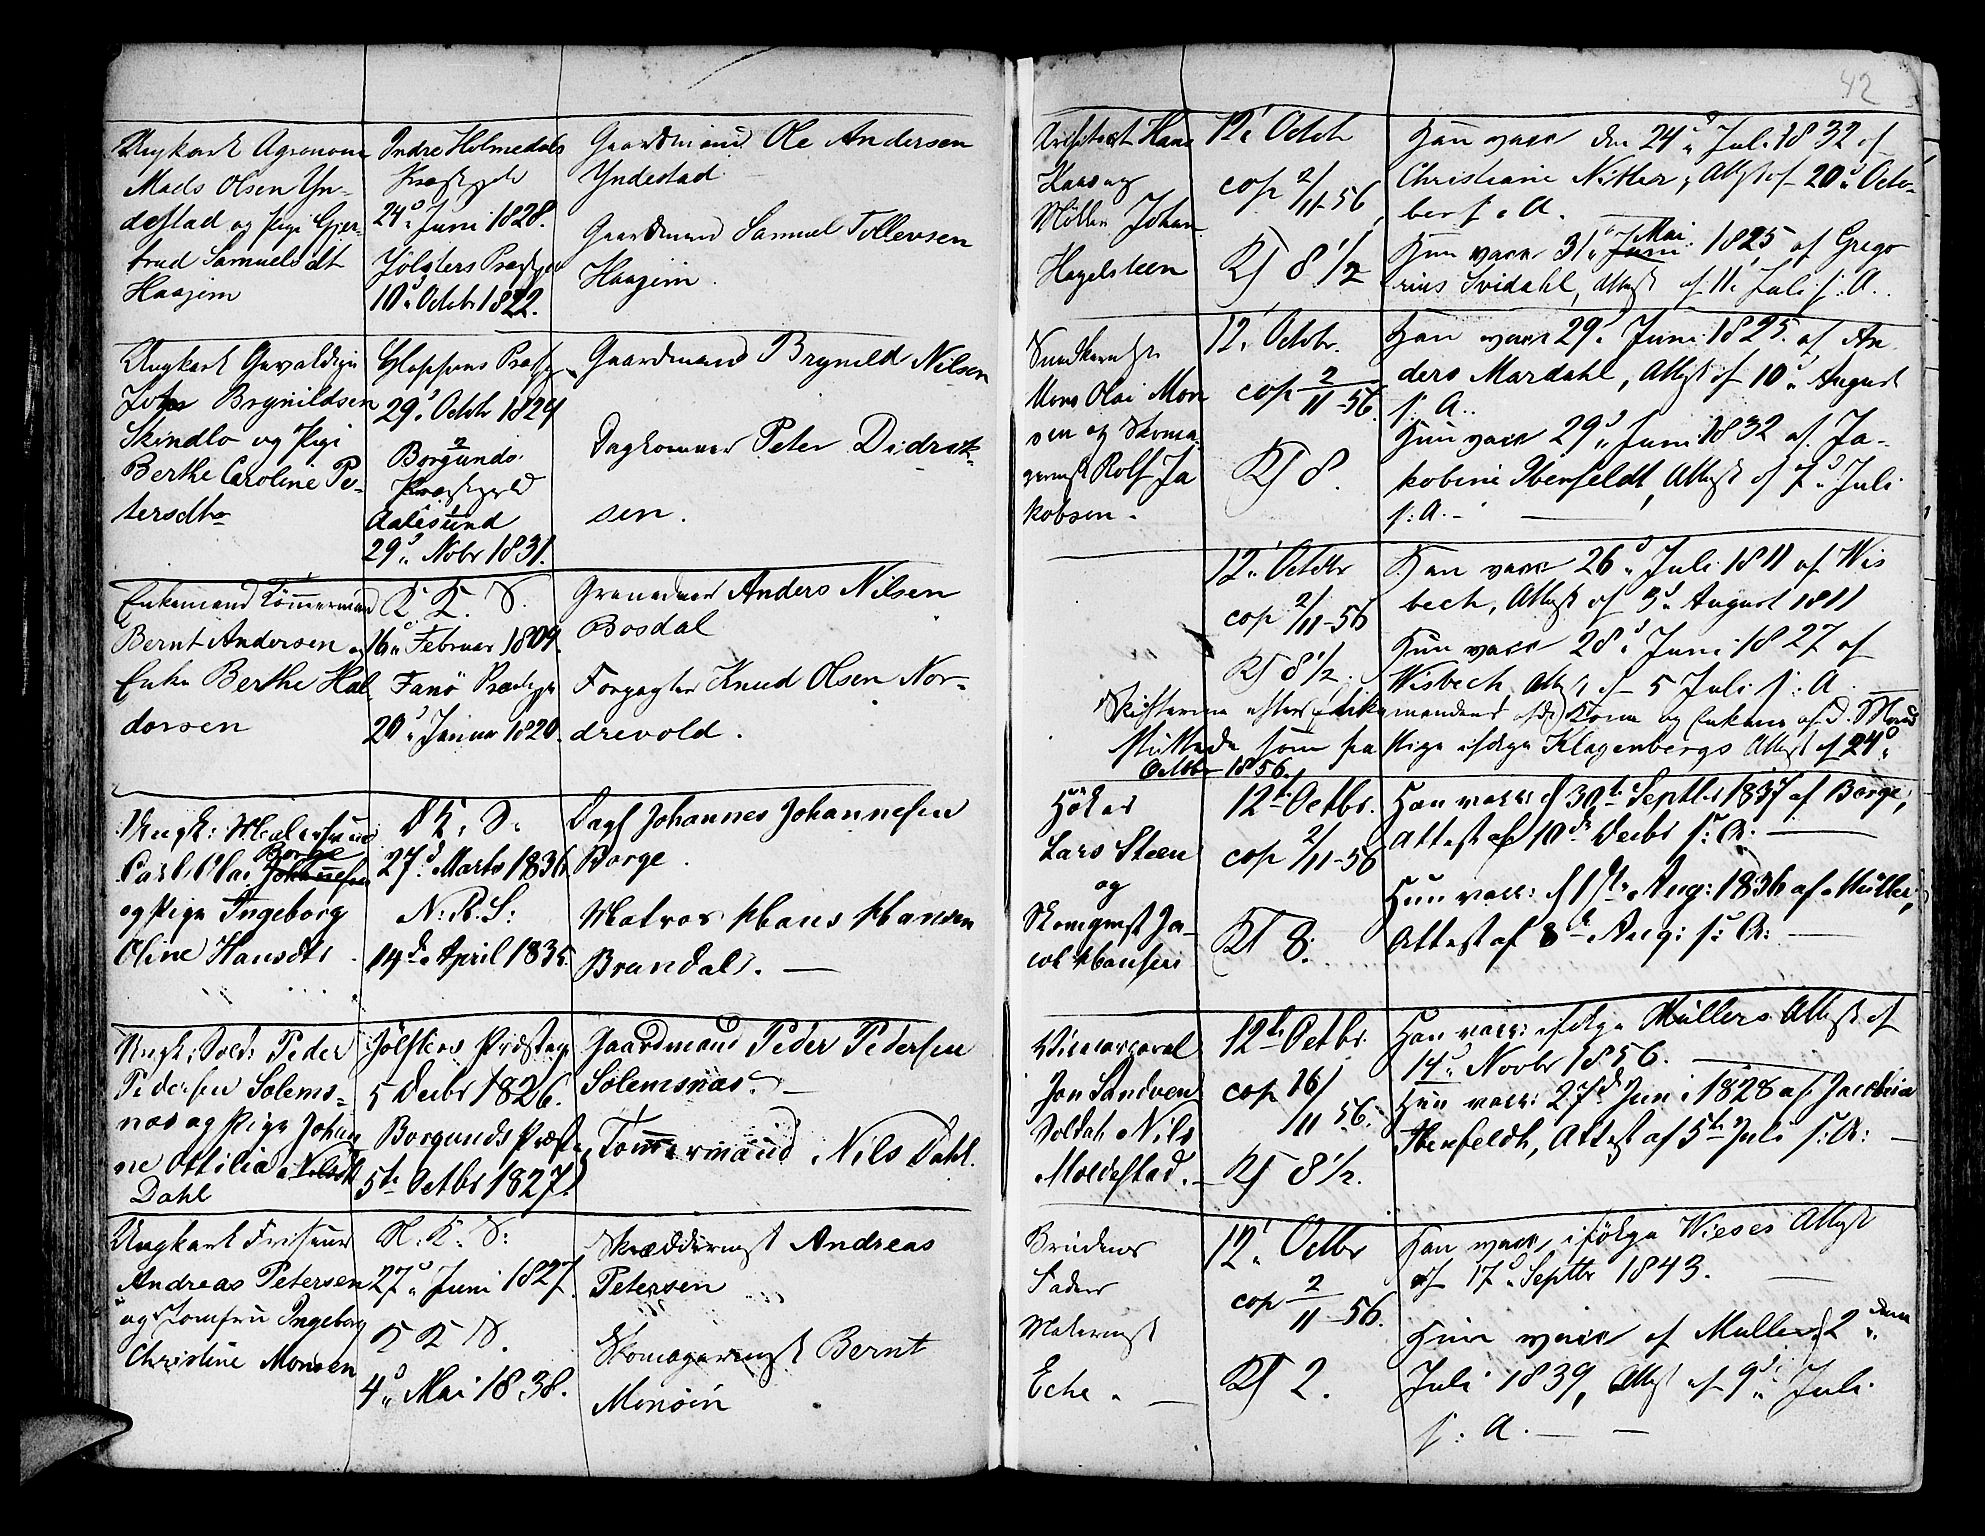 42
Ungkarl Agronom
Mads Olsen Yn-
destad og Pige Gjer-
trud Samuelsdt
Haagem
Indre Holmedals
Præstegjeld
24d Juni 1828.
Jölsters Præstegjeld
10d Octbr 1822.
Gaardmand Ole Andersen
Yndestad
Gaardmand Samuel Tollevsen
Haagem.
Architect Hans
Kaas og
Møller Johan
Hagelsteen
12' Octobr
cop 2/11-56
KJ 8 1/2
Han vacc den 24d Juli 1832 af
Christiane Nitter, Attest af 20d Octo-
ber s. A.
Hun vacc 31d Mai Juni 1825 af Grego
rius Svidahl, Attest af 11 Juli s: A.
Ungkarl
Johs Brynildsen
Skindlo og Pige
Berthe Caroline Pe-
tersdtr
Gloppens Præstegj
29d Octbr 1824
Borgunds
Præstegjeld
Aalesund
29d Novbr 1831.
Gaardmand Brynild Nilsen
Peter Didrik-
sen.
Mons Olai Mon
sen og Skoma-
germst Rolf Ja
kobsen.
12' Octobr.
cop 2/11-56
KJ 8.
Han vacc 29d Juni 1825. af An
ders Mardahl, Attest af 10d August
s: A..
Hun vacc 29d Juni 1832 af Ja-
kobine Ibenfeldt, Attest af 7d Juli
s: A. -
Enkemand Tömmermand
Bernt Andersen og
Enke Berthe Hal
dorsen
K. K. S.
16d Februar 1804.
Fanö Præstegj
20d Januar 1820.
Anders Nilsen
Bosdal
Knud Olsen Nor-
drevold.
12' Octobr
cop 2/11-56
KJ 8 1/2.
Han vacc 26d Juli 1811 af Wis
bech, Attest af 3d August 1811
Hun vacc 28d Juni 1827 af
Wisbech, Attest af 5 Juli s: A.
Skifterne efter Enkemandens afd. Kone og Enkens afd. Mand
Pige ifølge Klagenbergs Attest af 24d
Octobr 1856.
Ungk: Malersvend
Carl Olai Borge Johannesen
og Pige Ingeborg
Oline Hansdtr.
D K. S.
27d Marts 1836
N: K. S:
14de April 1835.
Johannes Johannesen
Borge.
Matros Hans Hansen
Brandal. —
Höker
Lars Steen
og
Skomgmst Ja-
cob Hansen
12te Octbr.
cop 2/11-56
KJ 8:
Han vacc: d 30te Septbr 1837 af Borge,
Attest af 10de Decbr s: A: —
Hun vacc: d 1ste Aug: 1836 af Müller,
Attest af 8de Aug: s: A: —
Ungk: Sold: Peder
Pedersen Solems-
næs og Pige Johan
ne Ottilia Nilsdt
Dahl
Jölsters Præstegj
5 Decbr 1826.
Borgunds Præstegj
5te Octbr 1827.
Gaardmand Peder Pedersen
Solemsnæs. —
Tömmermand Nils Dahl.
Jon Sandven
Soldat Nils
Moldestad. —
12te Octbr.
cop 16/11 56.
KJ 8 1/2.
Han vacc: ifølge Müllers Attest af
14d Novbr 1856. —
Hun vacc: 27d Juni 1828 af Jacobine
Ibenfeldt, Attest af 5te Juli s: A: —
Ungkarl Friseur
Andreas Petersen
og Jomfru Ingeborg
Christine Monsen
N. K. S:
27d Juni 1827.
K K S.
4d Mai 1838.
Skræddermst Andreas
Petersen
Skomagermst Bernt
Monsen
Brudens
Fader
Malermst
Eche. —
12' Octbr
cop 2/11-56.
KJ 2.
Han vacc, ifølge Wieses Attest
af 17d Septbr 1843. —
Hun vacc af Muller d 2den
Juli 1839, Attest af 9d Juli
s: A. — —